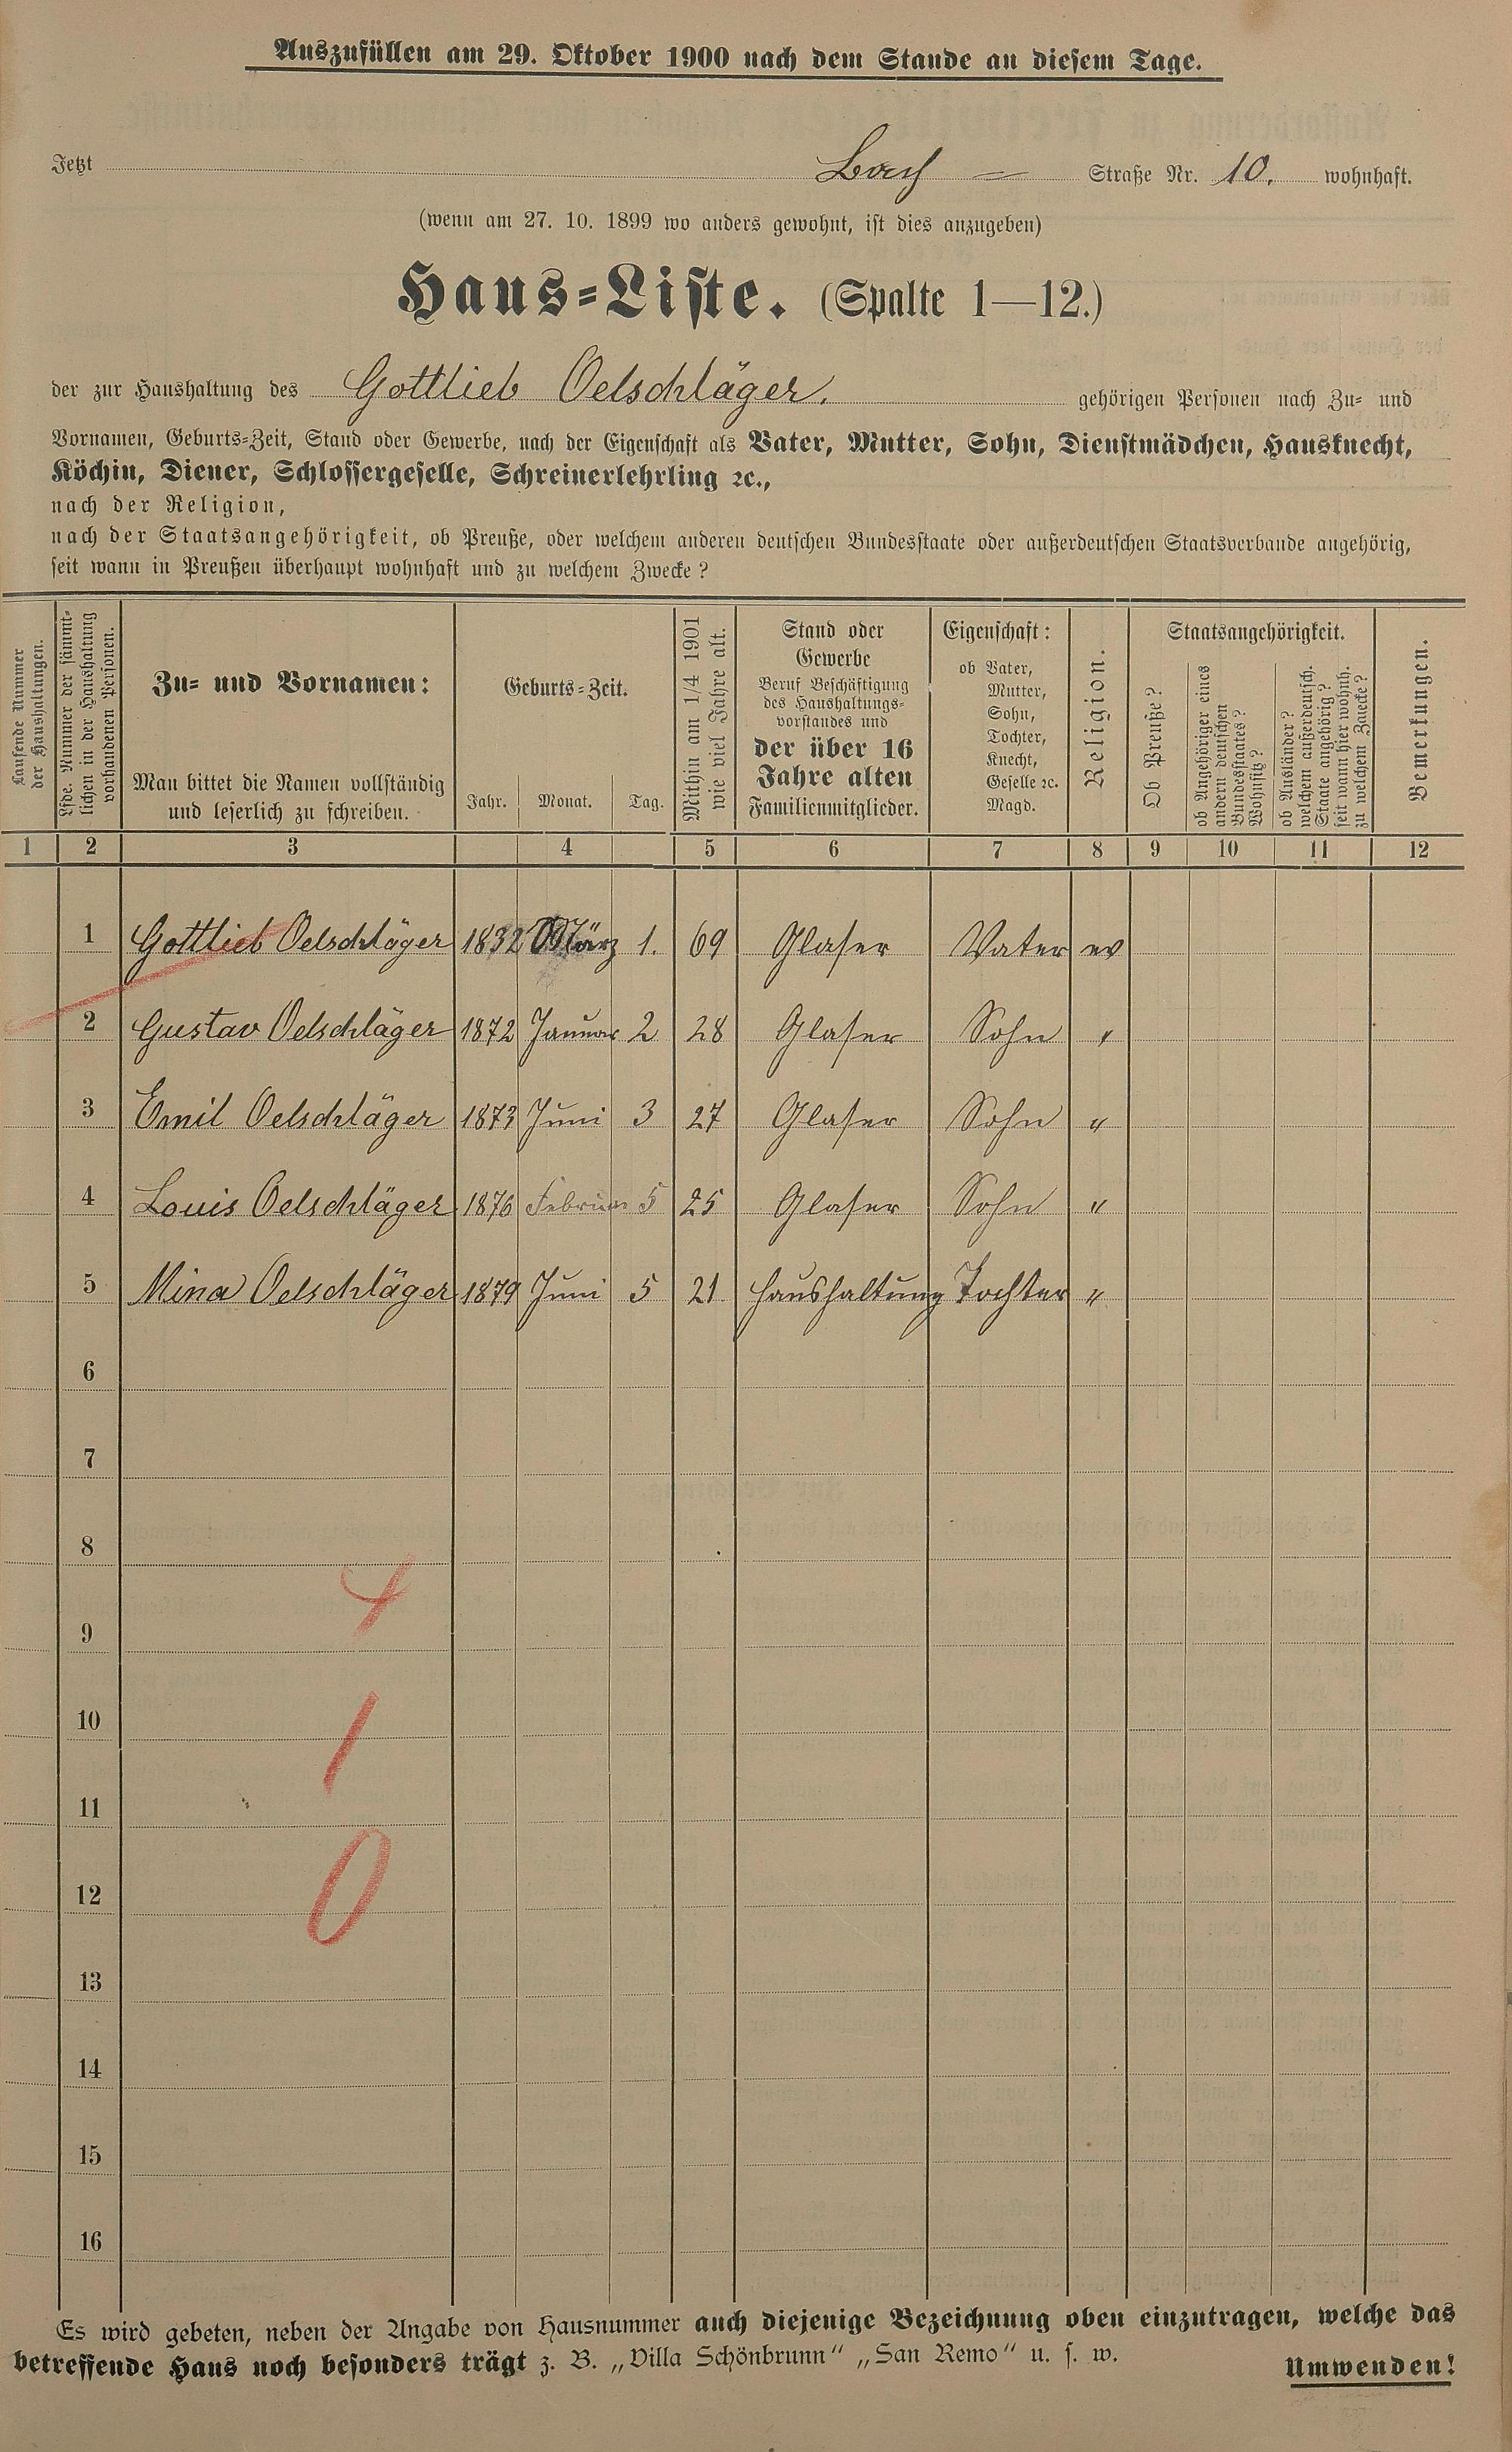 Auszufüllen am 29. Oktober 1900 nach dem Stande an diesem Tage.
Jetzt Straße Nr. 10. wohnhaft.
(wenn am 27. 10. 1899 wo anders gewohnt, ist dies anzugeben)
Haus=Liste. (Spalte 1—12.)
der zur Haushaltung des Gottlieb Oelschläger. gehörigen Personen nach Zu= und
Vornamen, Geburts=Zeit, Stand oder Gewerbe, nach der Eigenschaft als Vater, Mutter, Sohn, Dienstmädchen, Hausknecht,
Köchin, Diener, Schlossergeselle, Schreinerlehrling ꝛc.,
nach der Religion,
nach der Staatsangehörigkeit, ob Preuße, oder welchem anderen deutschen Bundesstaate oder außerdeutschen Staatsverbande angehörig,
seit wann in Preußen überhaupt wohnhaft und zu welchem Zwecke?
Laufende Nummer
der Haushaltungen.
Lfde. Nummer der sämmt=
lichen in der Haushaltung
vorhandenen Personen.
Zu= und Vornamen:
Man bittet die Namen vollständig
und leserlich zu schreiben.
Geburts=Zeit.
Jahr. Monat. Tag.
Mithin am 1/4 1901
wie viel Jahre alt.
Stand oder
Gewerbe
Beruf Beschäftigung
des Haushaltungs=
vorstandes und
der über 16
Jahre alten
Familienmitglieder.
Eigenschaft:
ob Vater,
Mutter,
Sohn,
Tochter,
Knecht,
Geselle ꝛc.
Magd.
Religion.
Staatsangehörigkeit.
Ob Preuße?
ob Angehöriger eines
andern deutschen
Bundesstaates?
Wohnsitz?
ob Ausländer?
welchem außerdeutsch.
Staate angehörig?
seit wann hier wohnh.
zu welchem Zwecke?
Bemerkungen.
1 2 3 4 5 6 7 8 9 10 11 12
1 Gottlieb Oelschläger 1832 März 1. 69 Glaser Vater ev
2 Gustav Oelschläger 1872 Januar 2 28 Glaser Sohn "
3 Emil Oelschläger 1873 Juni 3 27 Glaser Sohn "
4 Louis Oelschläger 1876 Februar 5 25 Glaser Sohn "
5 Mina Oelschläger 1879 Juni 5 21 Haushaltung Tochter "
6
7
8
4
9
10
1
11
12
0
13
14
15
16
Es wird gebeten, neben der Angabe von Hausnummer auch diejenige Bezeichnung oben einzutragen, welche das
betreffende Haus noch besonders trägt z. B. „Villa Schönbrunn" „San Remo" u. s. w.
Umwenden!